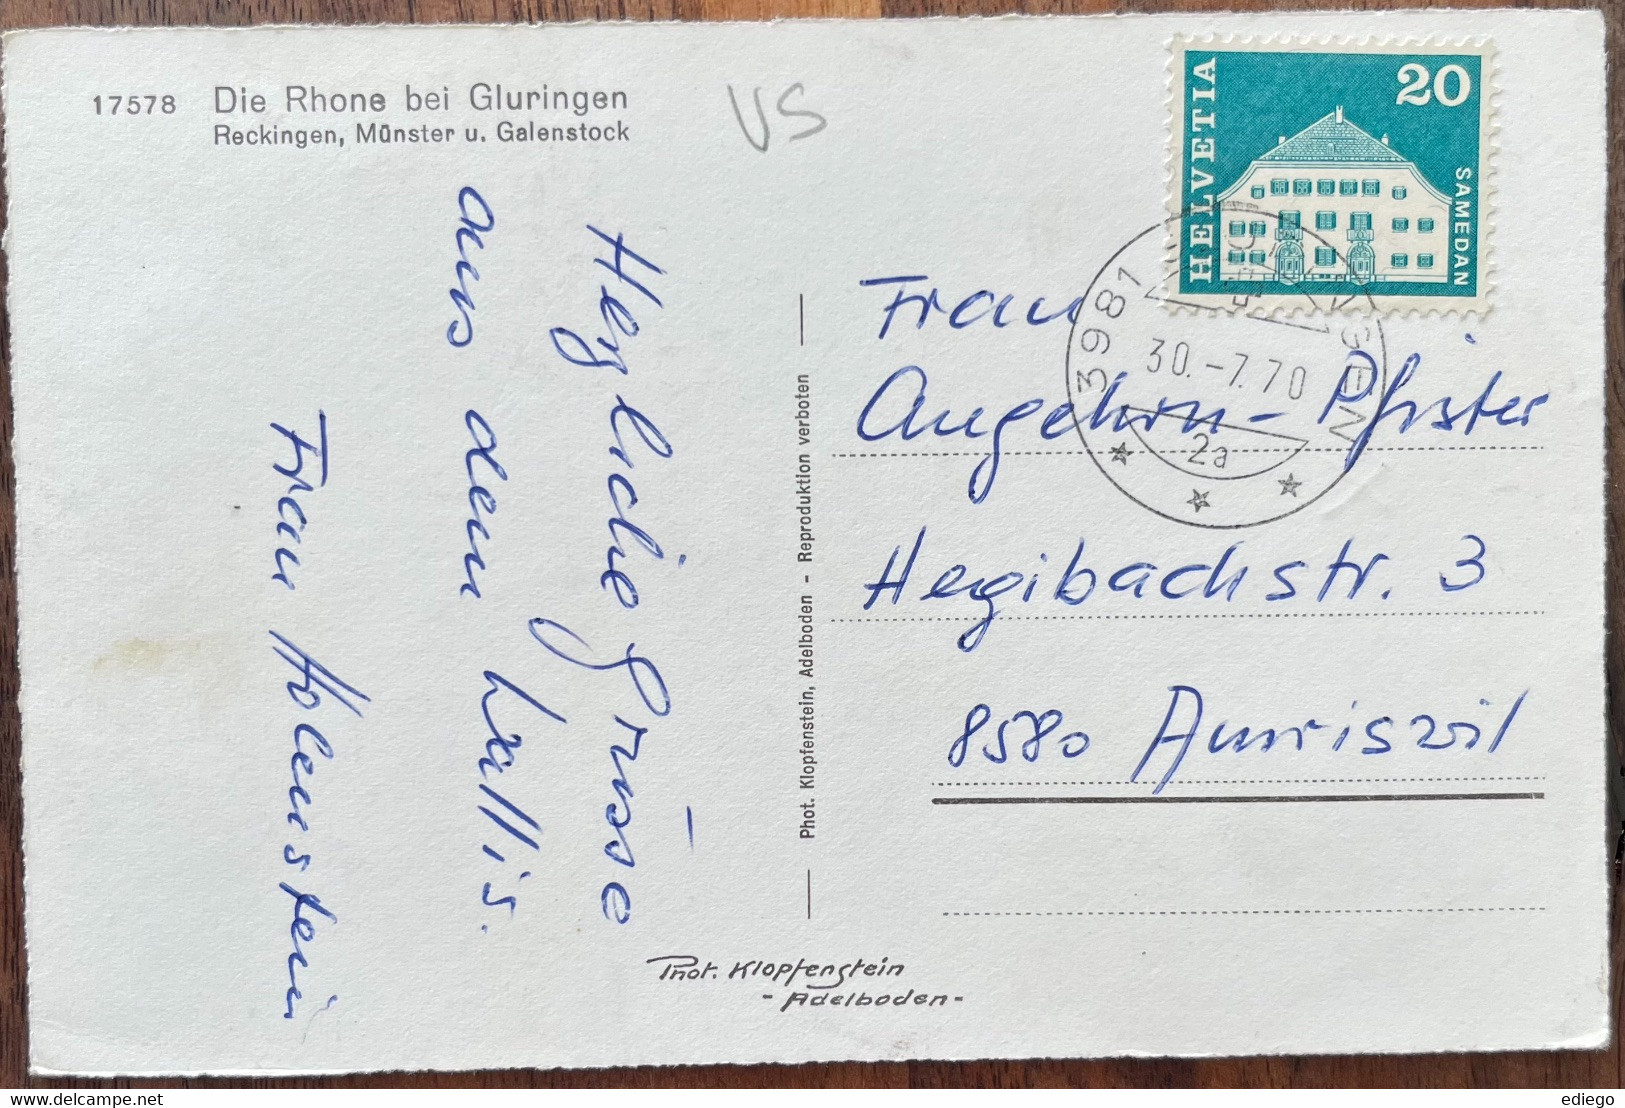 17578 Die Rhone bei Gluringen
Reckingen, Münster u. Galenstock
VS
HELVETIA
20
SAMEDAN
3981
30.-7.70
2a
Herzliche Grüsse
aus dem Wallis.
Frau Holenstein
Phot. Klopfenstein, Adelboden - Reproduktion verboten
Frau
Angehrn-Pfister
Hegibachstr. 3
8580 Amriswil
Phot. Klopfenstein
- Adelboden -
ediego